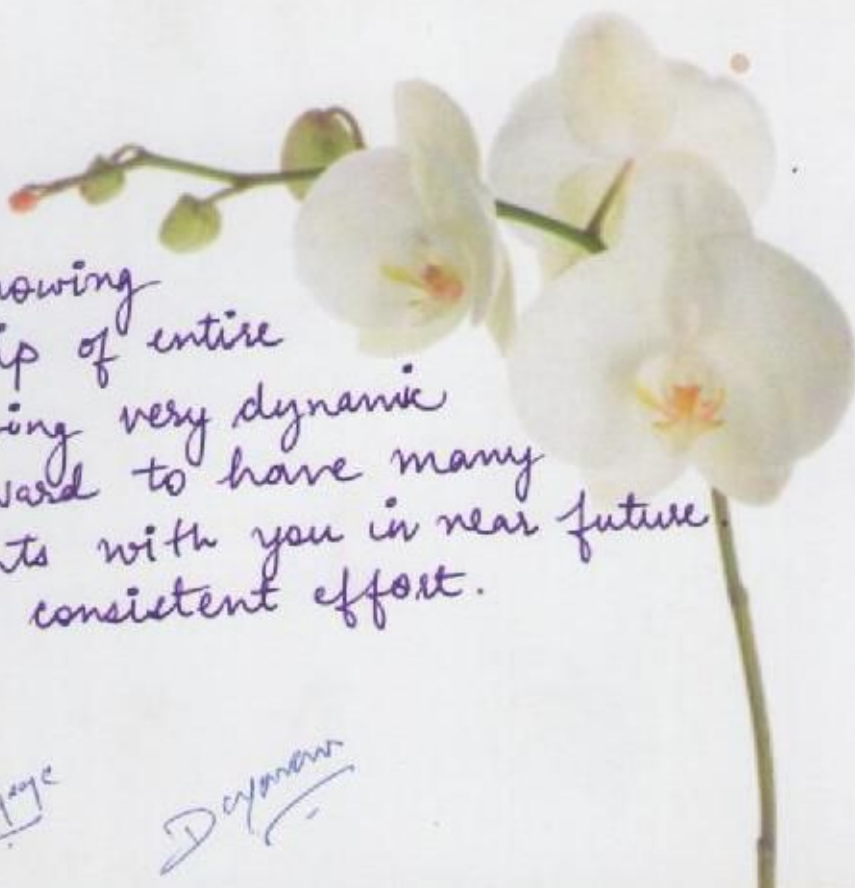 owing
ip of entire
ing very dynamic
ward to have many
ts with you in near future
consistent effort.